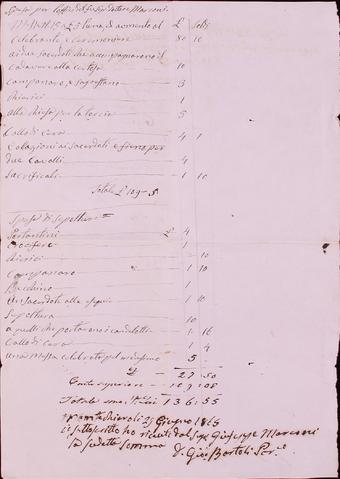 Spese per l'ufficio di fu Signor Dottore Marconi £ soldi
a £ 5 l'una di aomento al
Celebrante e ceremoniere 80 10
ai due sacerdoti che accompagnarono il
Cadavere alla certosa 10
Campanaro e sagrestano 3
Chierici 1
alla chiesa per le torcie 5
Callo di Cera 4 1
Colazioni ai sacerdoti e fieno per
due Cavalli 4
Sacrificali 1 10
Totale £ 109 - 5
Spese di Sepoltura
Portantini £ 4
Crocifero 1
Chierici 1 10
Campanaro 1 10
Becchino 1
Un sacerdote alle esequie 1 10
Sepoltura 10
a quelli che portarono i candelotti 1 16
Callo di Cera 1 4
Una Messa celebrata pel medesimo 5
27 50
Conto superiore 109 05
Totale somma Lire 136:55
li 25 Giugno 1865
io sottoscritto ho ricevuto dal Sig. Giuseppe Marconi
la sudetta somma D. Gio. Bortoli